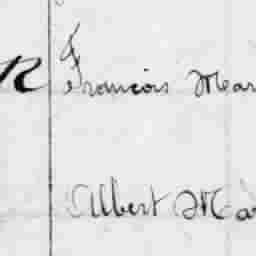 R François Mar
Albert Ma